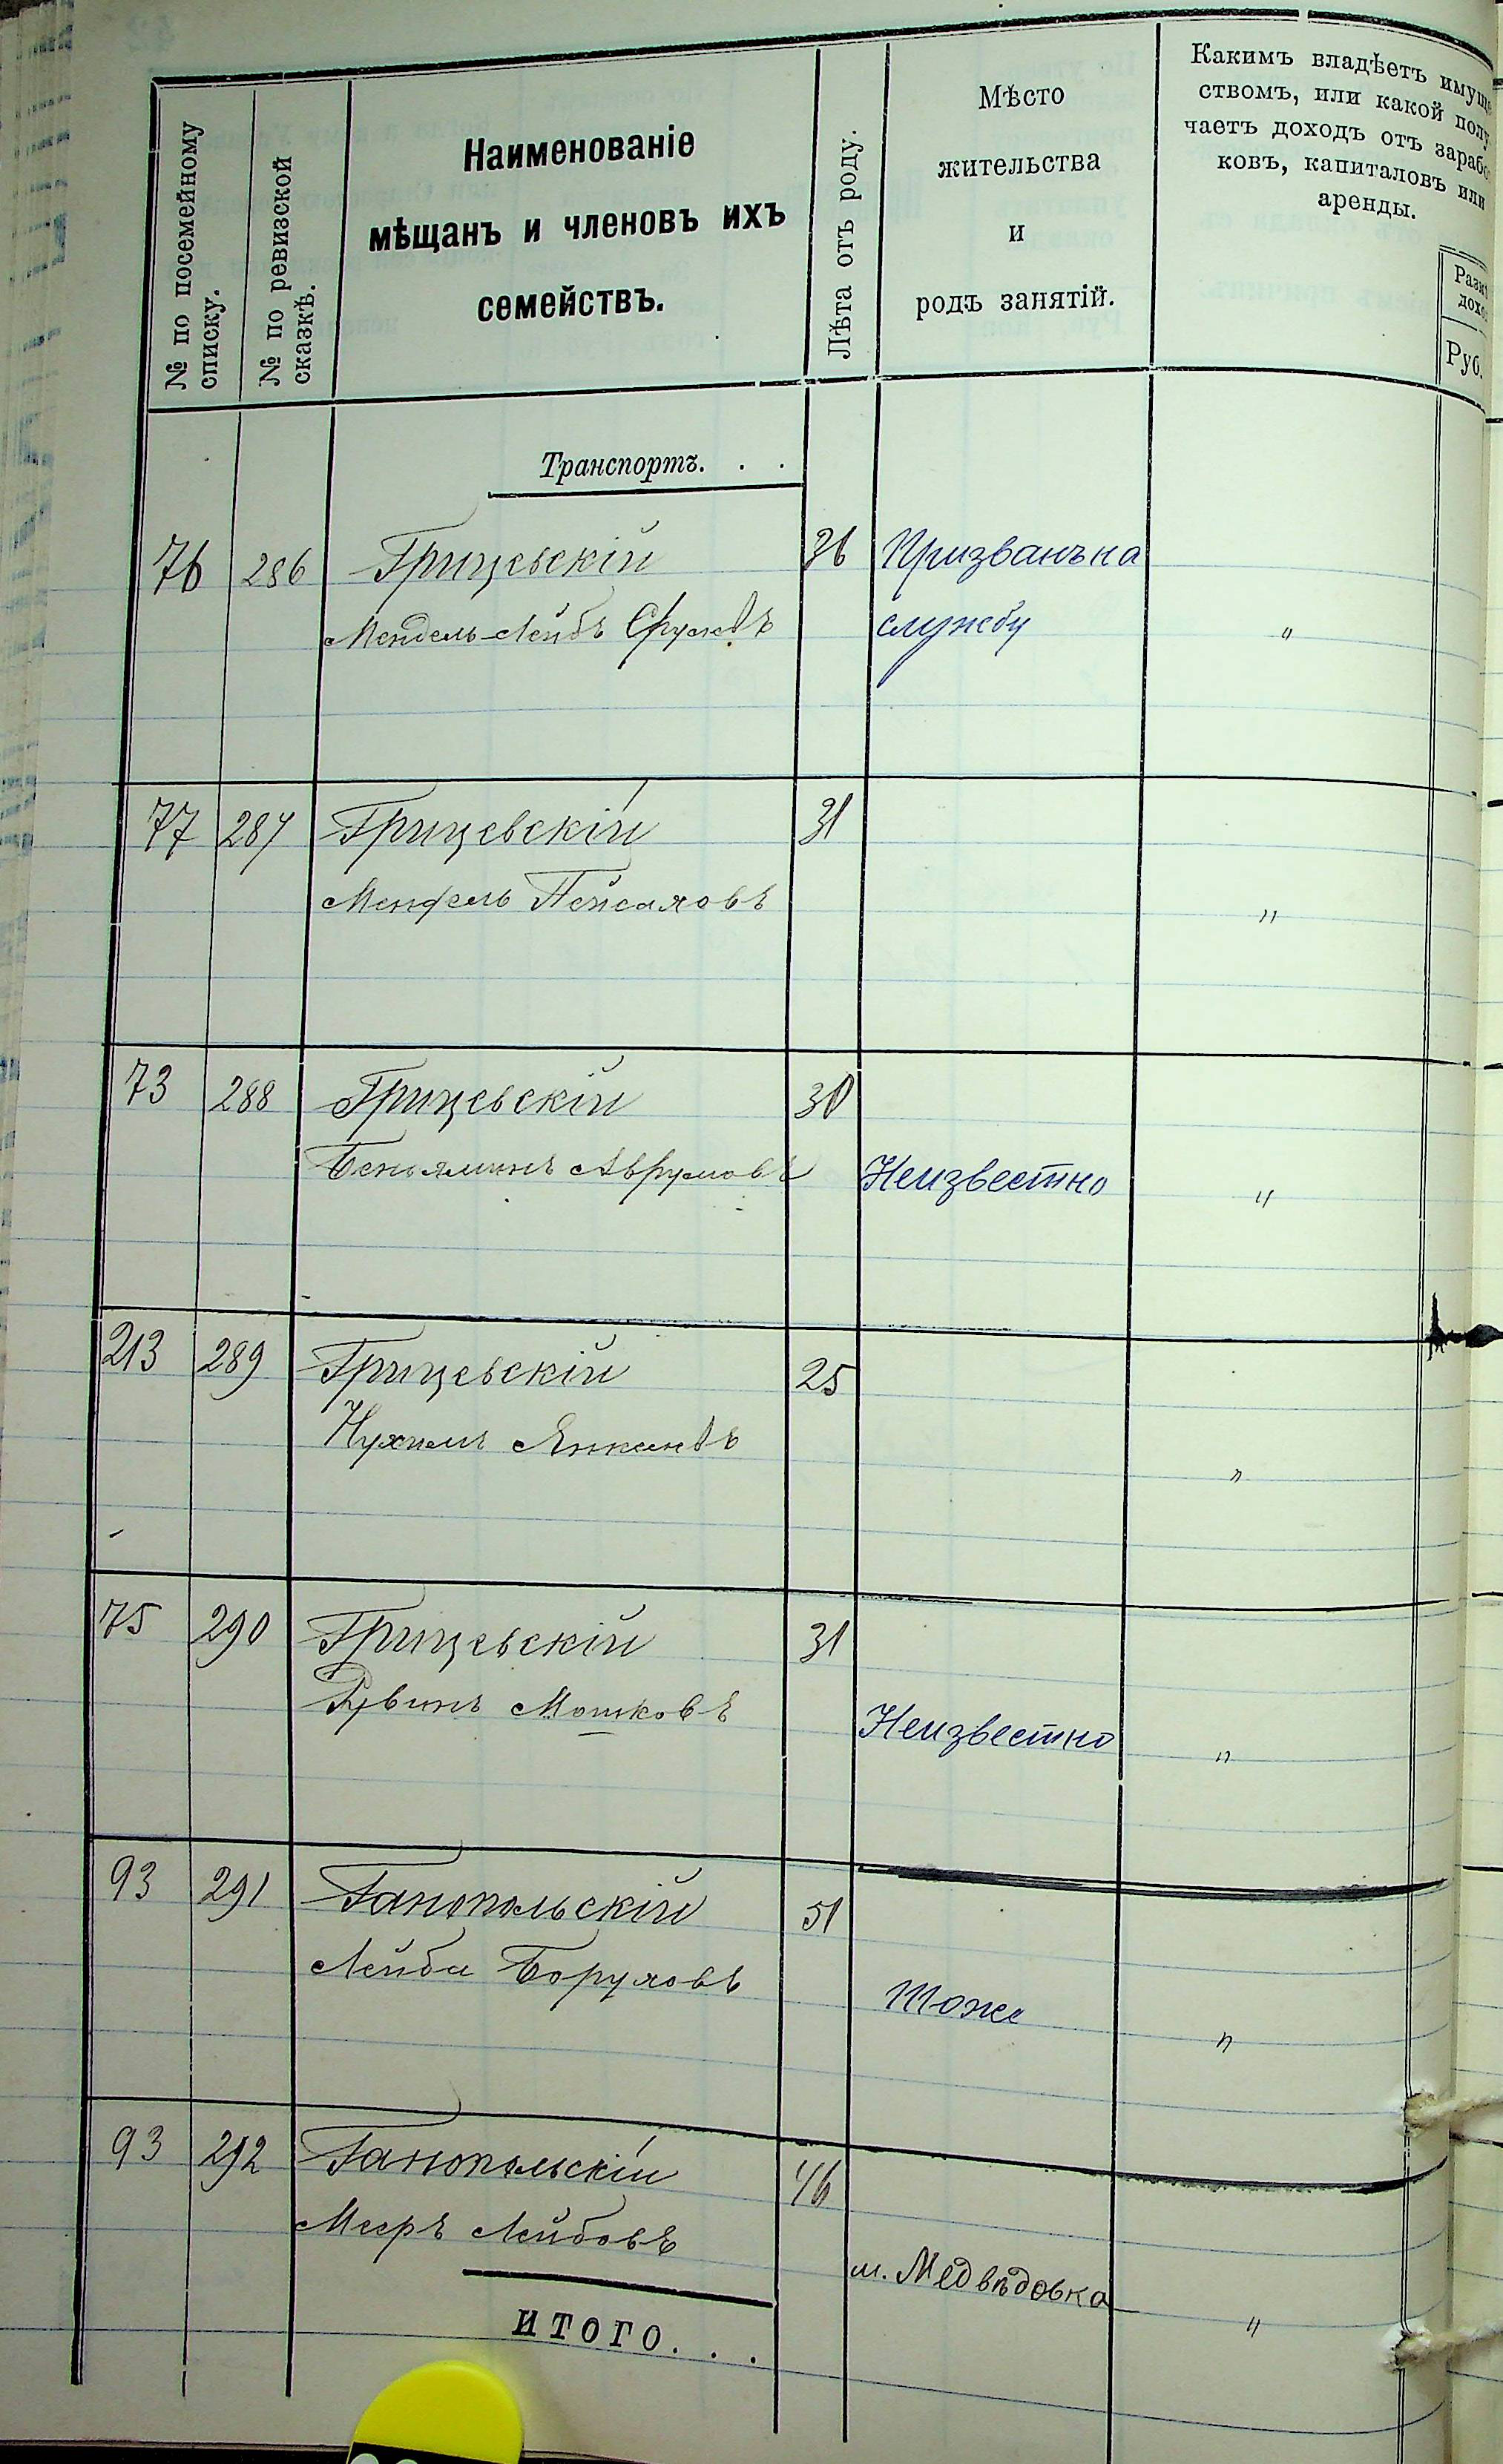 № по посемейному
списку.
№ по ревизской
сказкѣ.
Наименованіе
мѣщанъ и членовъ ихъ
семействъ.
Лѣта отъ роду.
Мѣсто
жительства
и
родъ занятій.
Какимъ владѣетъ имуще
ствомъ, или какой полу
чаетъ доходъ отъ зарабо
ковъ, капиталовъ или
аренды.
Разм
дохо
Руб.
Транспортъ. . .
76 286 Грицевскій 36 Призванъ на
Мендель-Лейбъ Срулевъ службу "
77 287 Грицевскій 31
Мендель Пейсаховъ "
73 288 Грицевскій 30
Беньяминъ Аврумовъ Неизвестно "
213 289 Грицевскій 25
Нухимъ Янкелевъ "
75 290 Грицевскій 31
Рувинъ Мошковъ Неизвестно "
93 291 Ганопольскій 51
Лейба Боруховъ Тоже "
93 292 Ганопольскій 46
Мееръ Лейбовъ
м. Медвѣдовка "
ИТОГО. . .